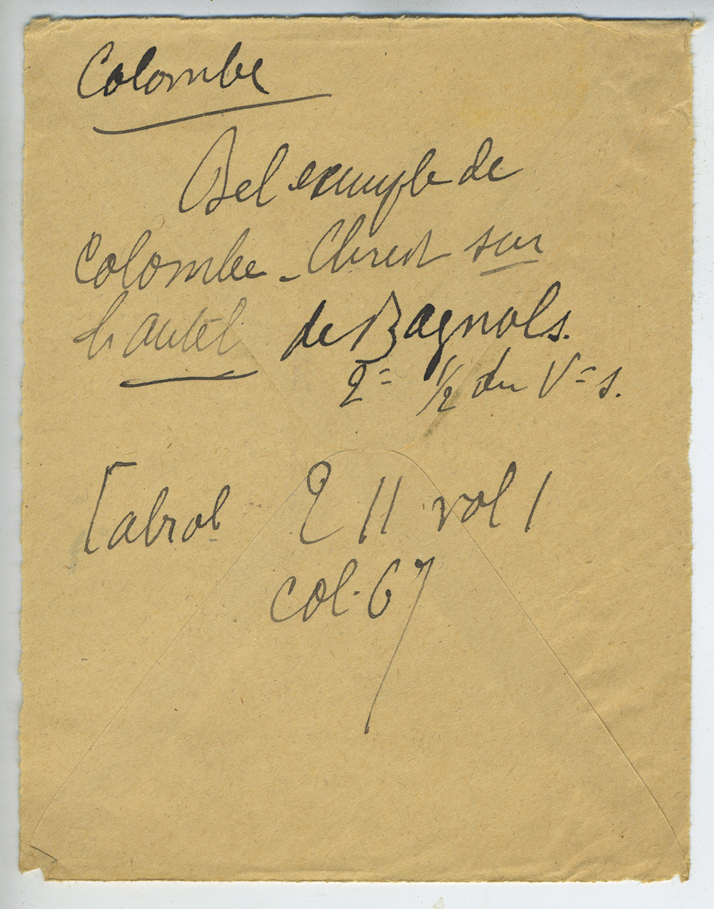 Colombe
Bel exemple de
Colombe - Christ sur
l'autel de Bagnols.
2= 1/2 du V= s.
Cabrol 2 II vol 1
col. 67